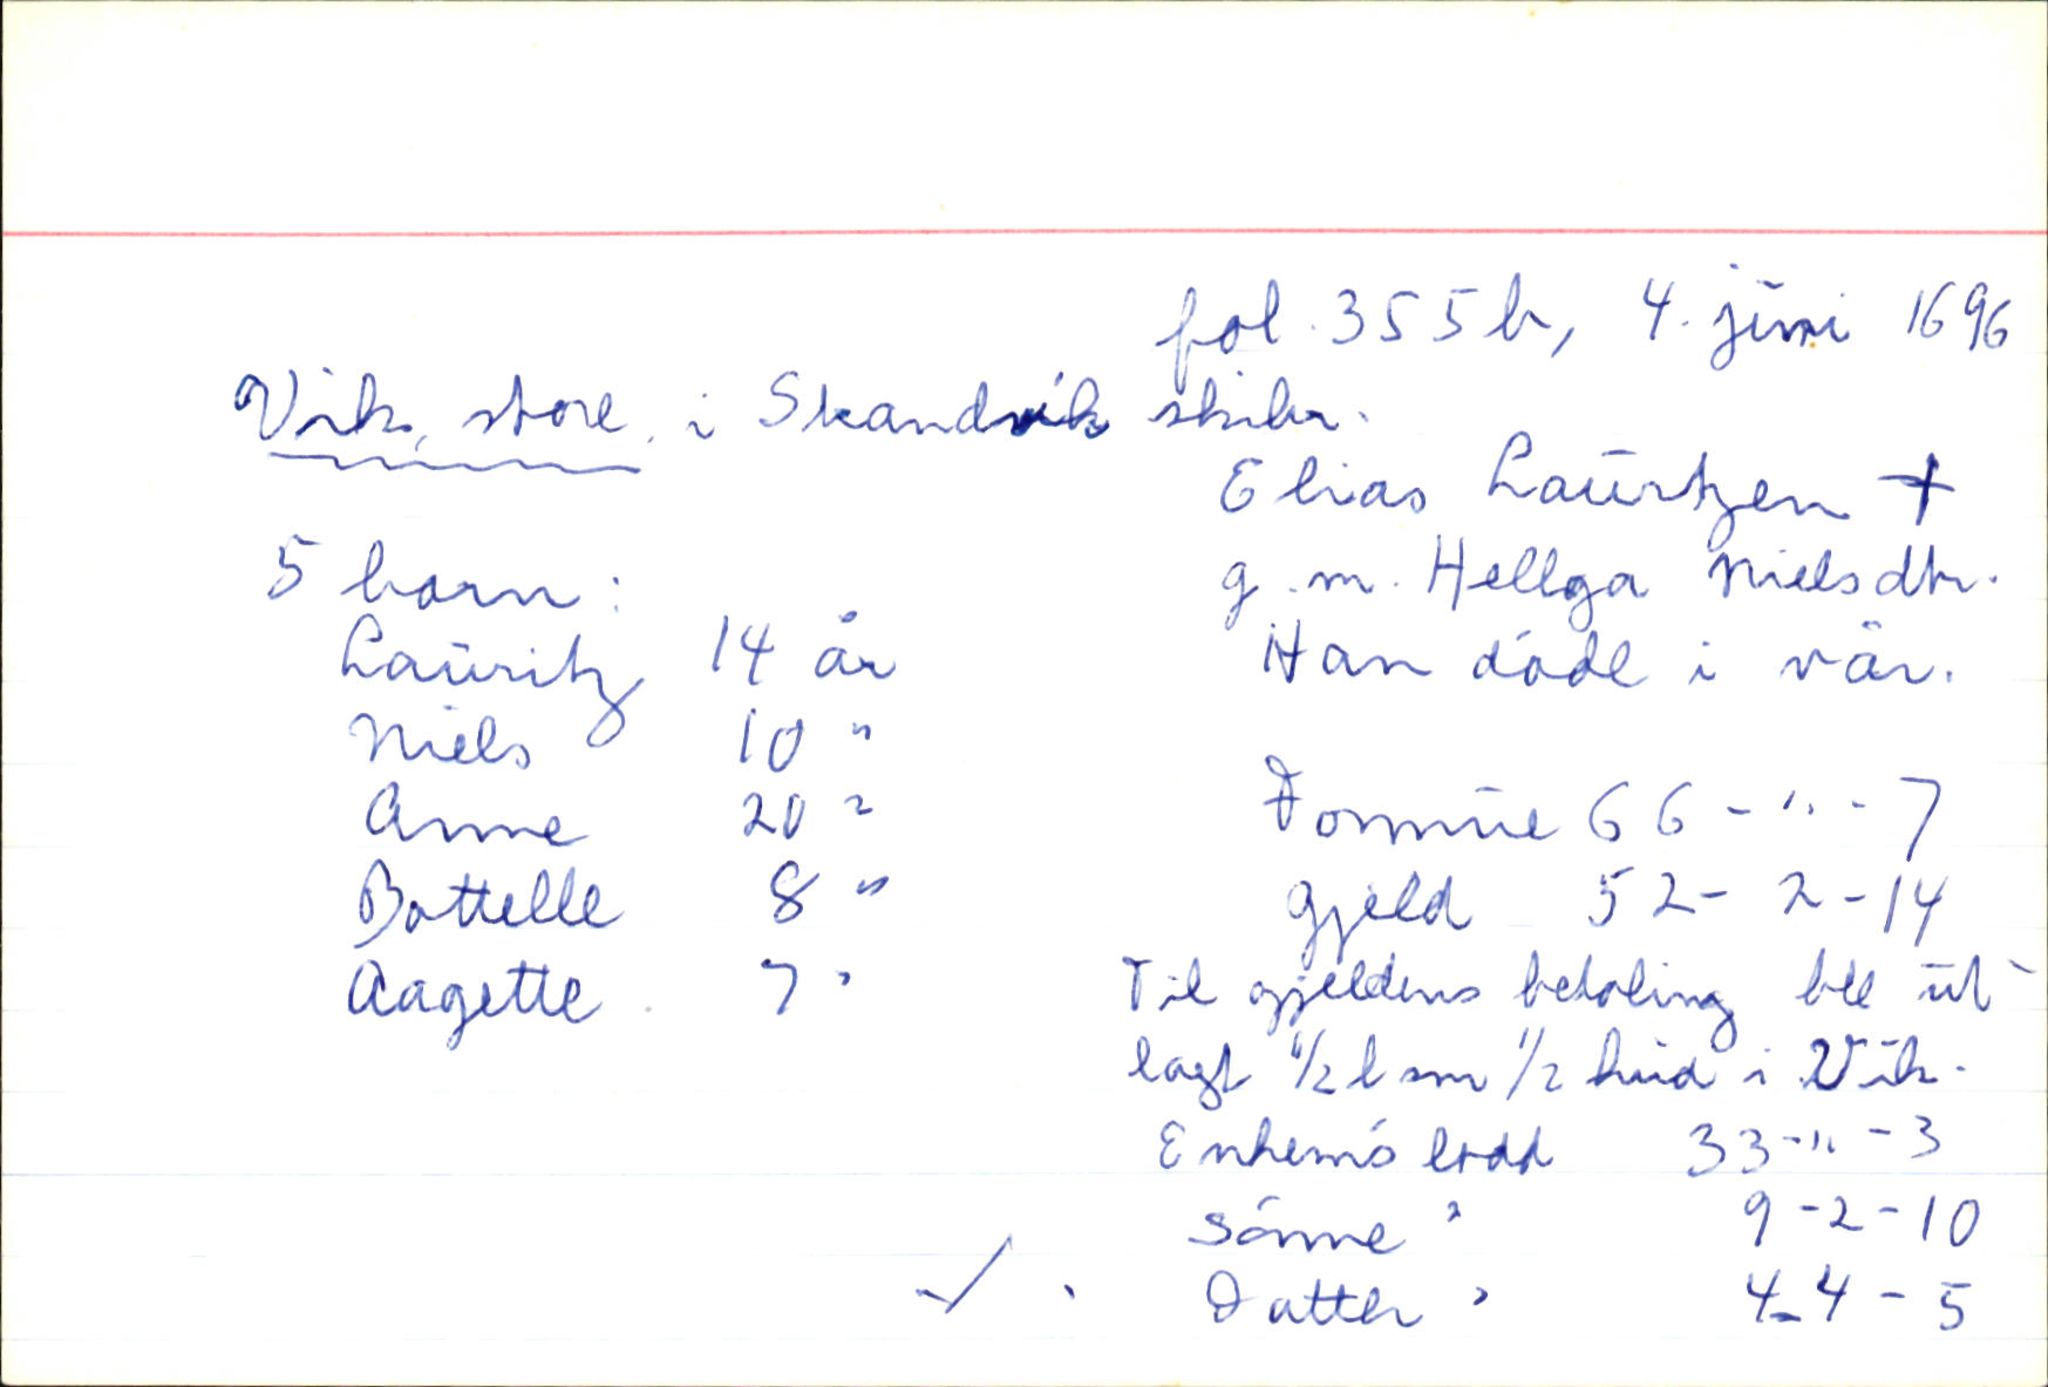 fol. 355b, 4. juni 1696
Vik, store, i Skandvik skibr.
Elias Laurtzen +
g.m. Hellga Nielsdtr.
Han døde i vår.
5 barn:
Lauritz 14 år
Niels 10 "
Anne 20 "
Bottelle 8 "
Aagette 7 "
Formue 66 - " - 7
Gjeld 52 - 2 - 14
Til gjeldens betaling ble ut-
lagt 1/2 l sm 1/2 hud i Vik.
Enkens lodd 33 - " - 3
Sønne " 9 - 2 - 10
✓ . Datter " 4 - 4 - 5